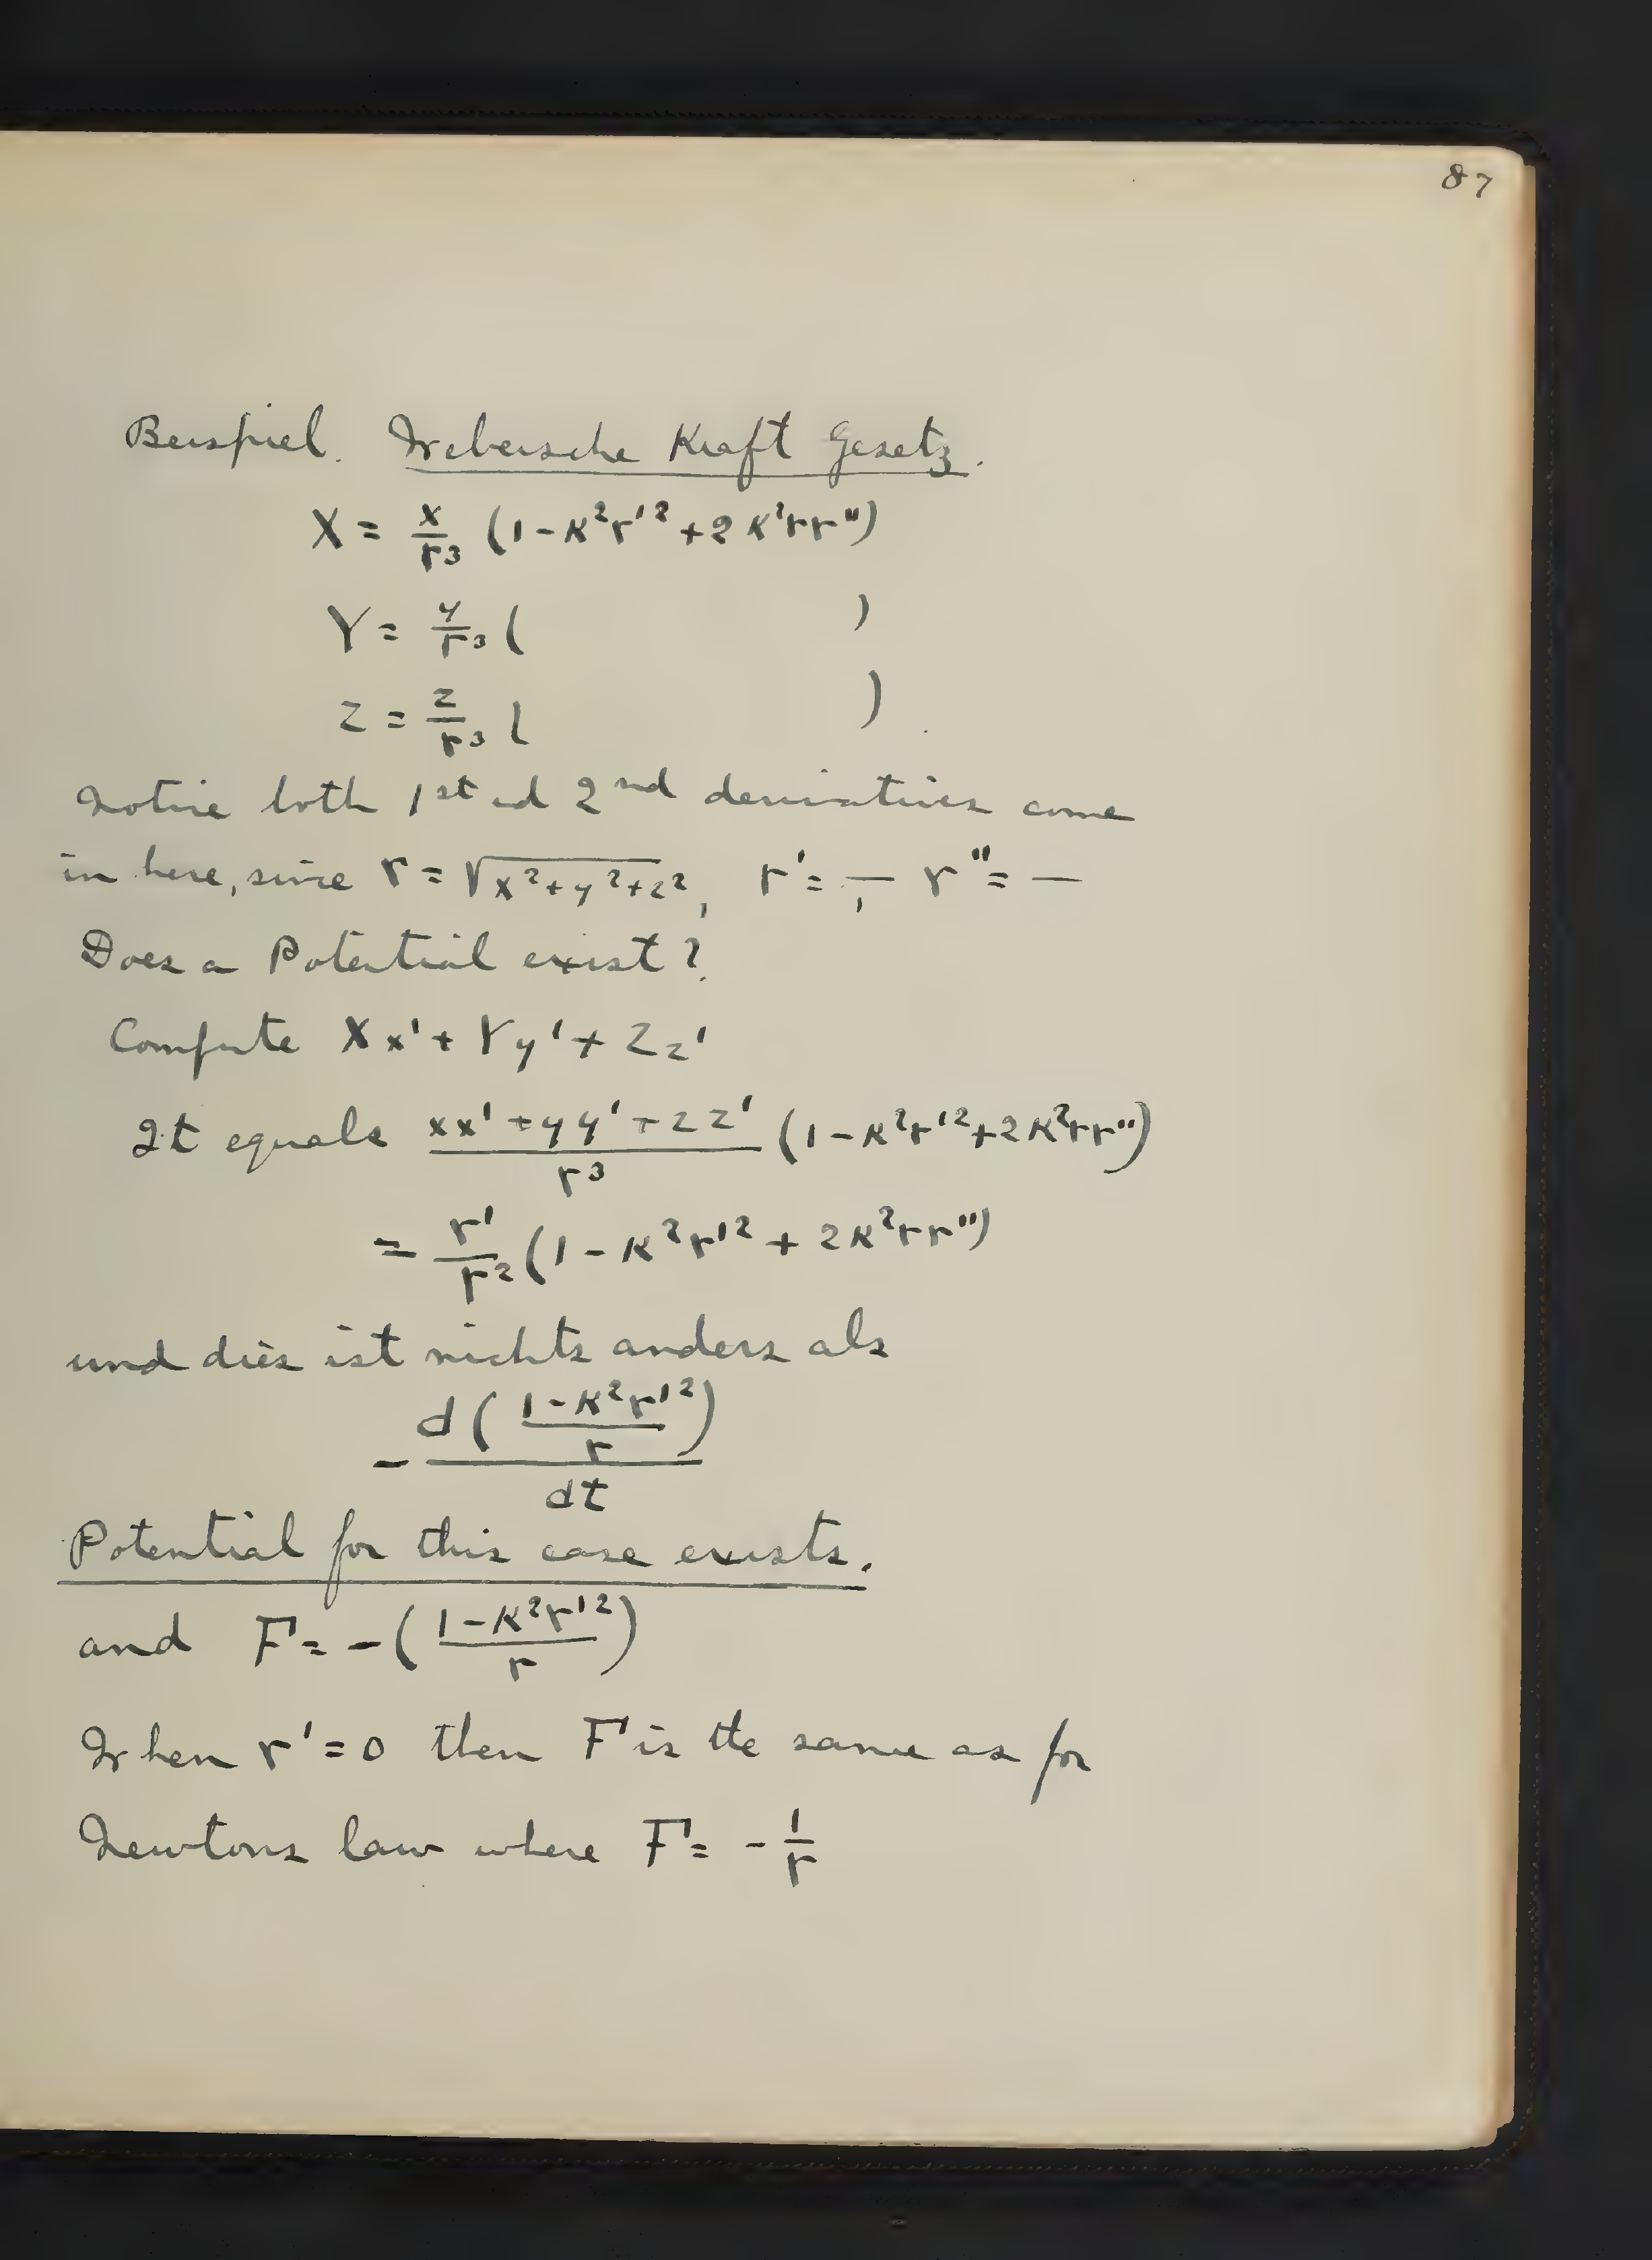 87
Beispiel. Webersche Kraft Gesetz.
X = x/r³ (1 - κ²r'² + 2κ²rr'')
Y = y/r³ (                )
Z = z/r³ (                ).
Notice both 1st and 2nd derivatives come
in here, since r = √(x²+y²+z²), r' = —, r'' = —
Does a Potential exist?
Compute Xx' + Yy' + Zz'
It equals (xx' + yy' + zz')/r³ (1 - κ²r'² + 2κ²rr'')
= r'/r² (1 - κ²r'² + 2κ²rr'')
und dies ist nichts anders als
- d((1 - κ²r'²)/r)/dt
Potential for this case exists.
and F = -((1 - κ²r'²)/r)
When r' = 0 then F is the same as for
Newtons law where F = - 1/r